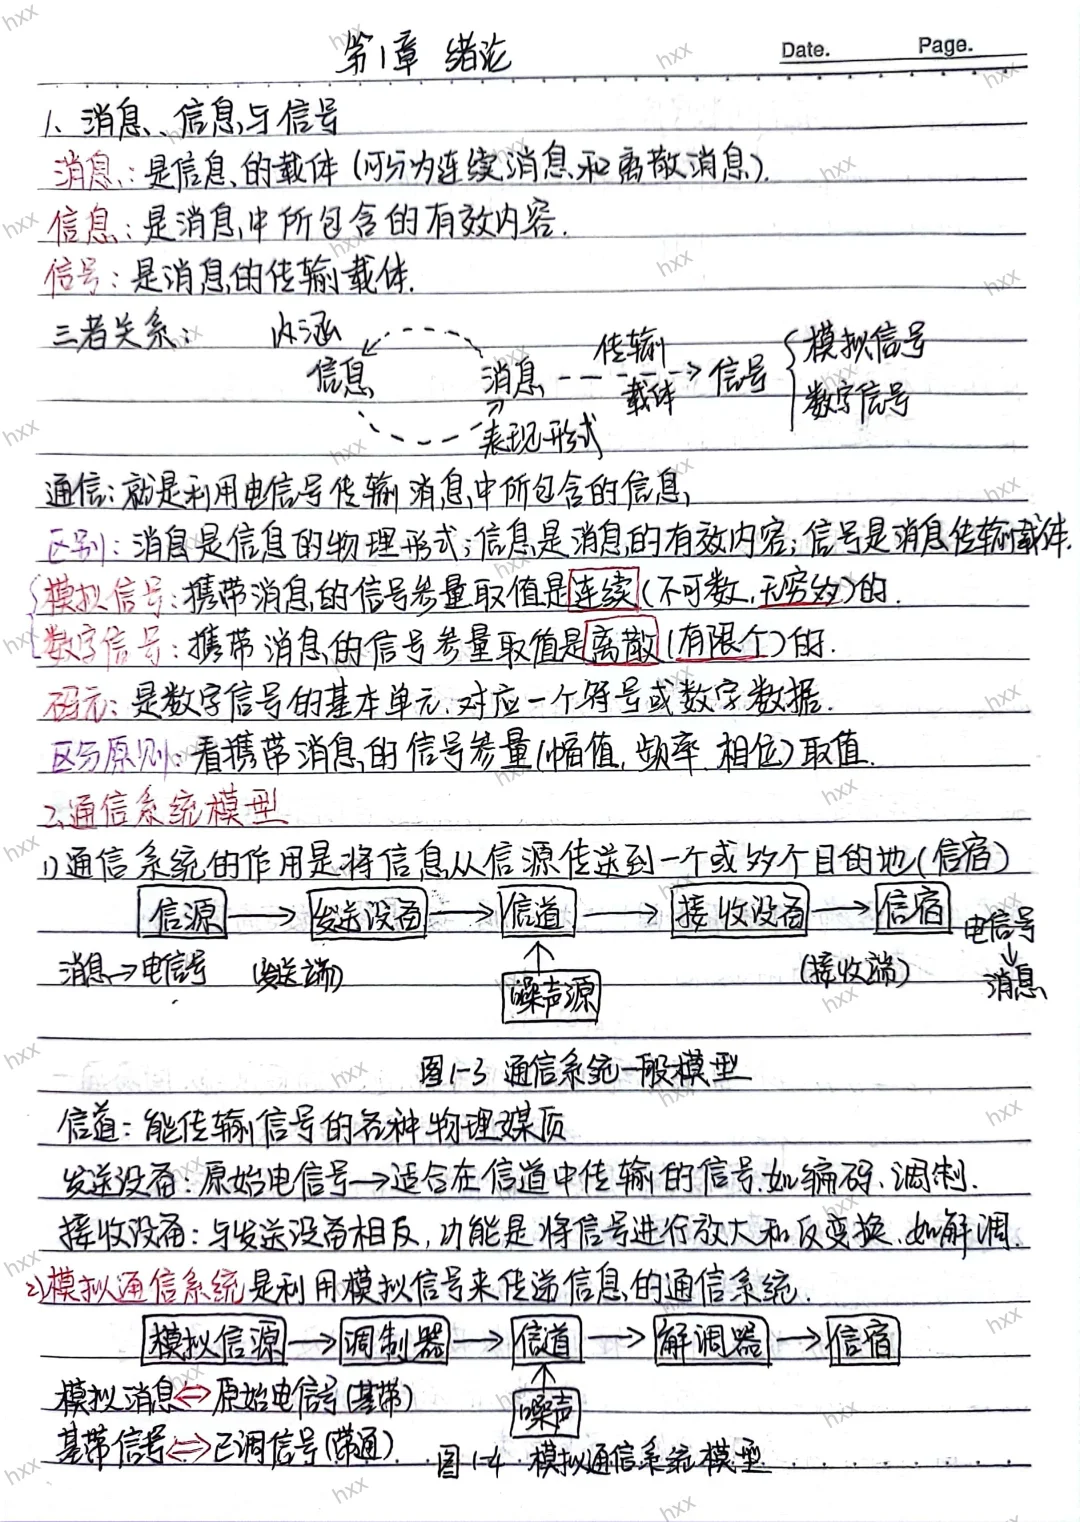 第1章 绪论
Date. Page.
1、消息、信息与信号
消息：是信息的载体（可分为连续消息和离散消息）.
信息：是消息中所包含的有效内容.
信号：是消息的传输载体.
三者关系： 内涵
信息 消息 传输 载体 信号 { 模拟信号 数字信号
表现形式
通信：就是利用电信号传输消息中所包含的信息
区别：消息是信息的物理形式；信息是消息的有效内容；信号是消息传输载体.
模拟信号：携带消息的信号参量取值是连续（不可数，无穷多）的.
数字信号：携带消息的信号参量取值是离散（有限个）的.
码元：是数字信号的基本单元.对应一个符号或数字数据.
区分原则：看携带消息的信号参量（幅值，频率，相位）取值.
2.通信系统模型
1)通信系统的作用是将信息从信源传送到一个或多个目的地（信宿）
信源 → 发送设备 → 信道 → 接收设备 → 信宿
消息→电信号 （发送端） 噪声源 （接收端） 电信号↓消息
图1-3 通信系统一般模型
信道：能传输信号的各种物理媒质
发送设备：原始电信号→适合在信道中传输的信号.如编码、调制.
接收设备：与发送设备相反，功能是将信号进行放大和反变换.如解调.
2)模拟通信系统是利用模拟信号来传递信息的通信系统.
模拟信源 → 调制器 → 信道 → 解调器 → 信宿
模拟消息⇔原始电信号（基带） 噪声
基带信号⇔已调信号（带通）. 图1-4 模拟通信系统模型
hxx